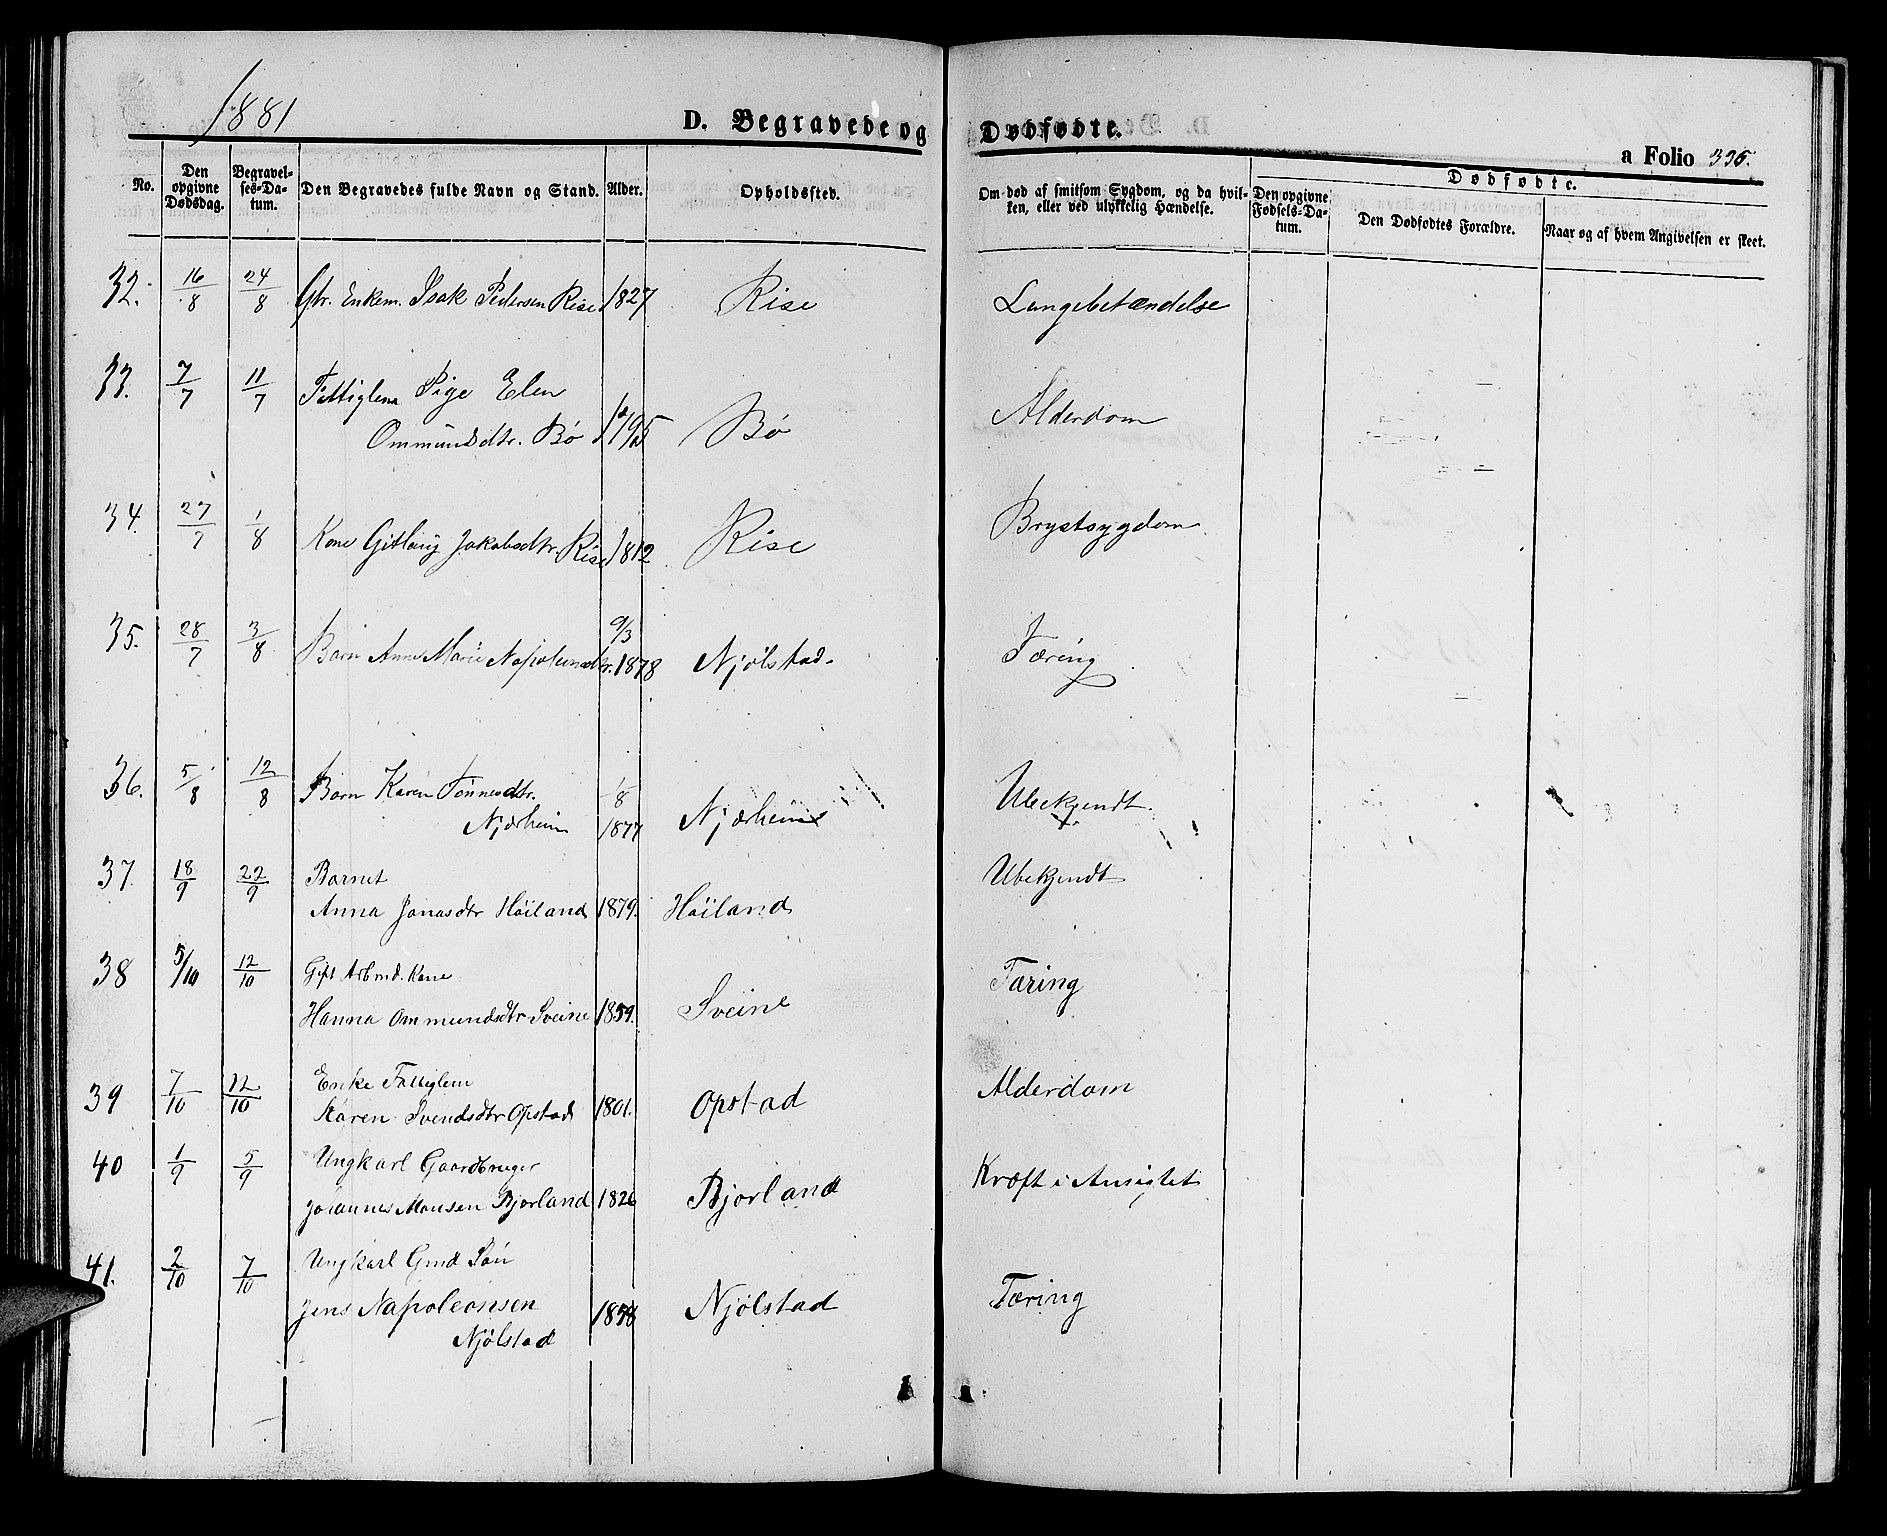 1881
D. Begravede og Dødfødte.
a Folio 335.
No. Den opgivne Dødsdag. Begravelses-Datum. Den Begravedes fulde Navn og Stand. Alder. Opholdssted. Om død af smitsom Sygdom, og da hvilken, eller ved ulykkelig Hændelse. Den opgivne Fødsels-Datum. Dødfødte. Den Dødfødtes Forældre. Naar og af hvem Angivelsen er skeet.
32. 16/8 24/8 Gbr. Enkem. Isak Pedersen Rise 1827 Rise Lungebetændelse
33. 7/7 11/7 Fattiglem Pige Elen
Ommundsdtr. Bø 1795 Bø Alderdom
34. 27/7 1/8 Kone Gitlaug Jakobsdtr. Rise 1812 Rise Brystsygdom
35. 28/7 3/8 Barn Anne Marie Napoleonsdtr. 9/3 1878 Njølstad. Tæring
36. 5/8 12/8 Barn Karen Tønnesdtr.
Njærheim 1/8 1877 Njærheim Ubekjendt.
37. 18/9 22/9 Barnet
Anna Jonasdtr Høiland 1879. Høiland Ubekjendt
38 5/10 12/10 Gift Arbmd. Kone
Hanna Ommundsdtr Sveine 1859. Sveine Tæring
39 7/10 12/10 Enke Fattiglem
Karen Svendsdtr Opstad 1801. Opstad Alderdom
40 1/9 5/9 Ungkarl Gaardbruger
Johannes Monsen Bjorland 1826 Bjorland Kræft i Ansigtet
41. 2/10 7/10 Ungkarl Gmd Søn
Jens Napoleonsen
Njølstad Njølstad Tæring